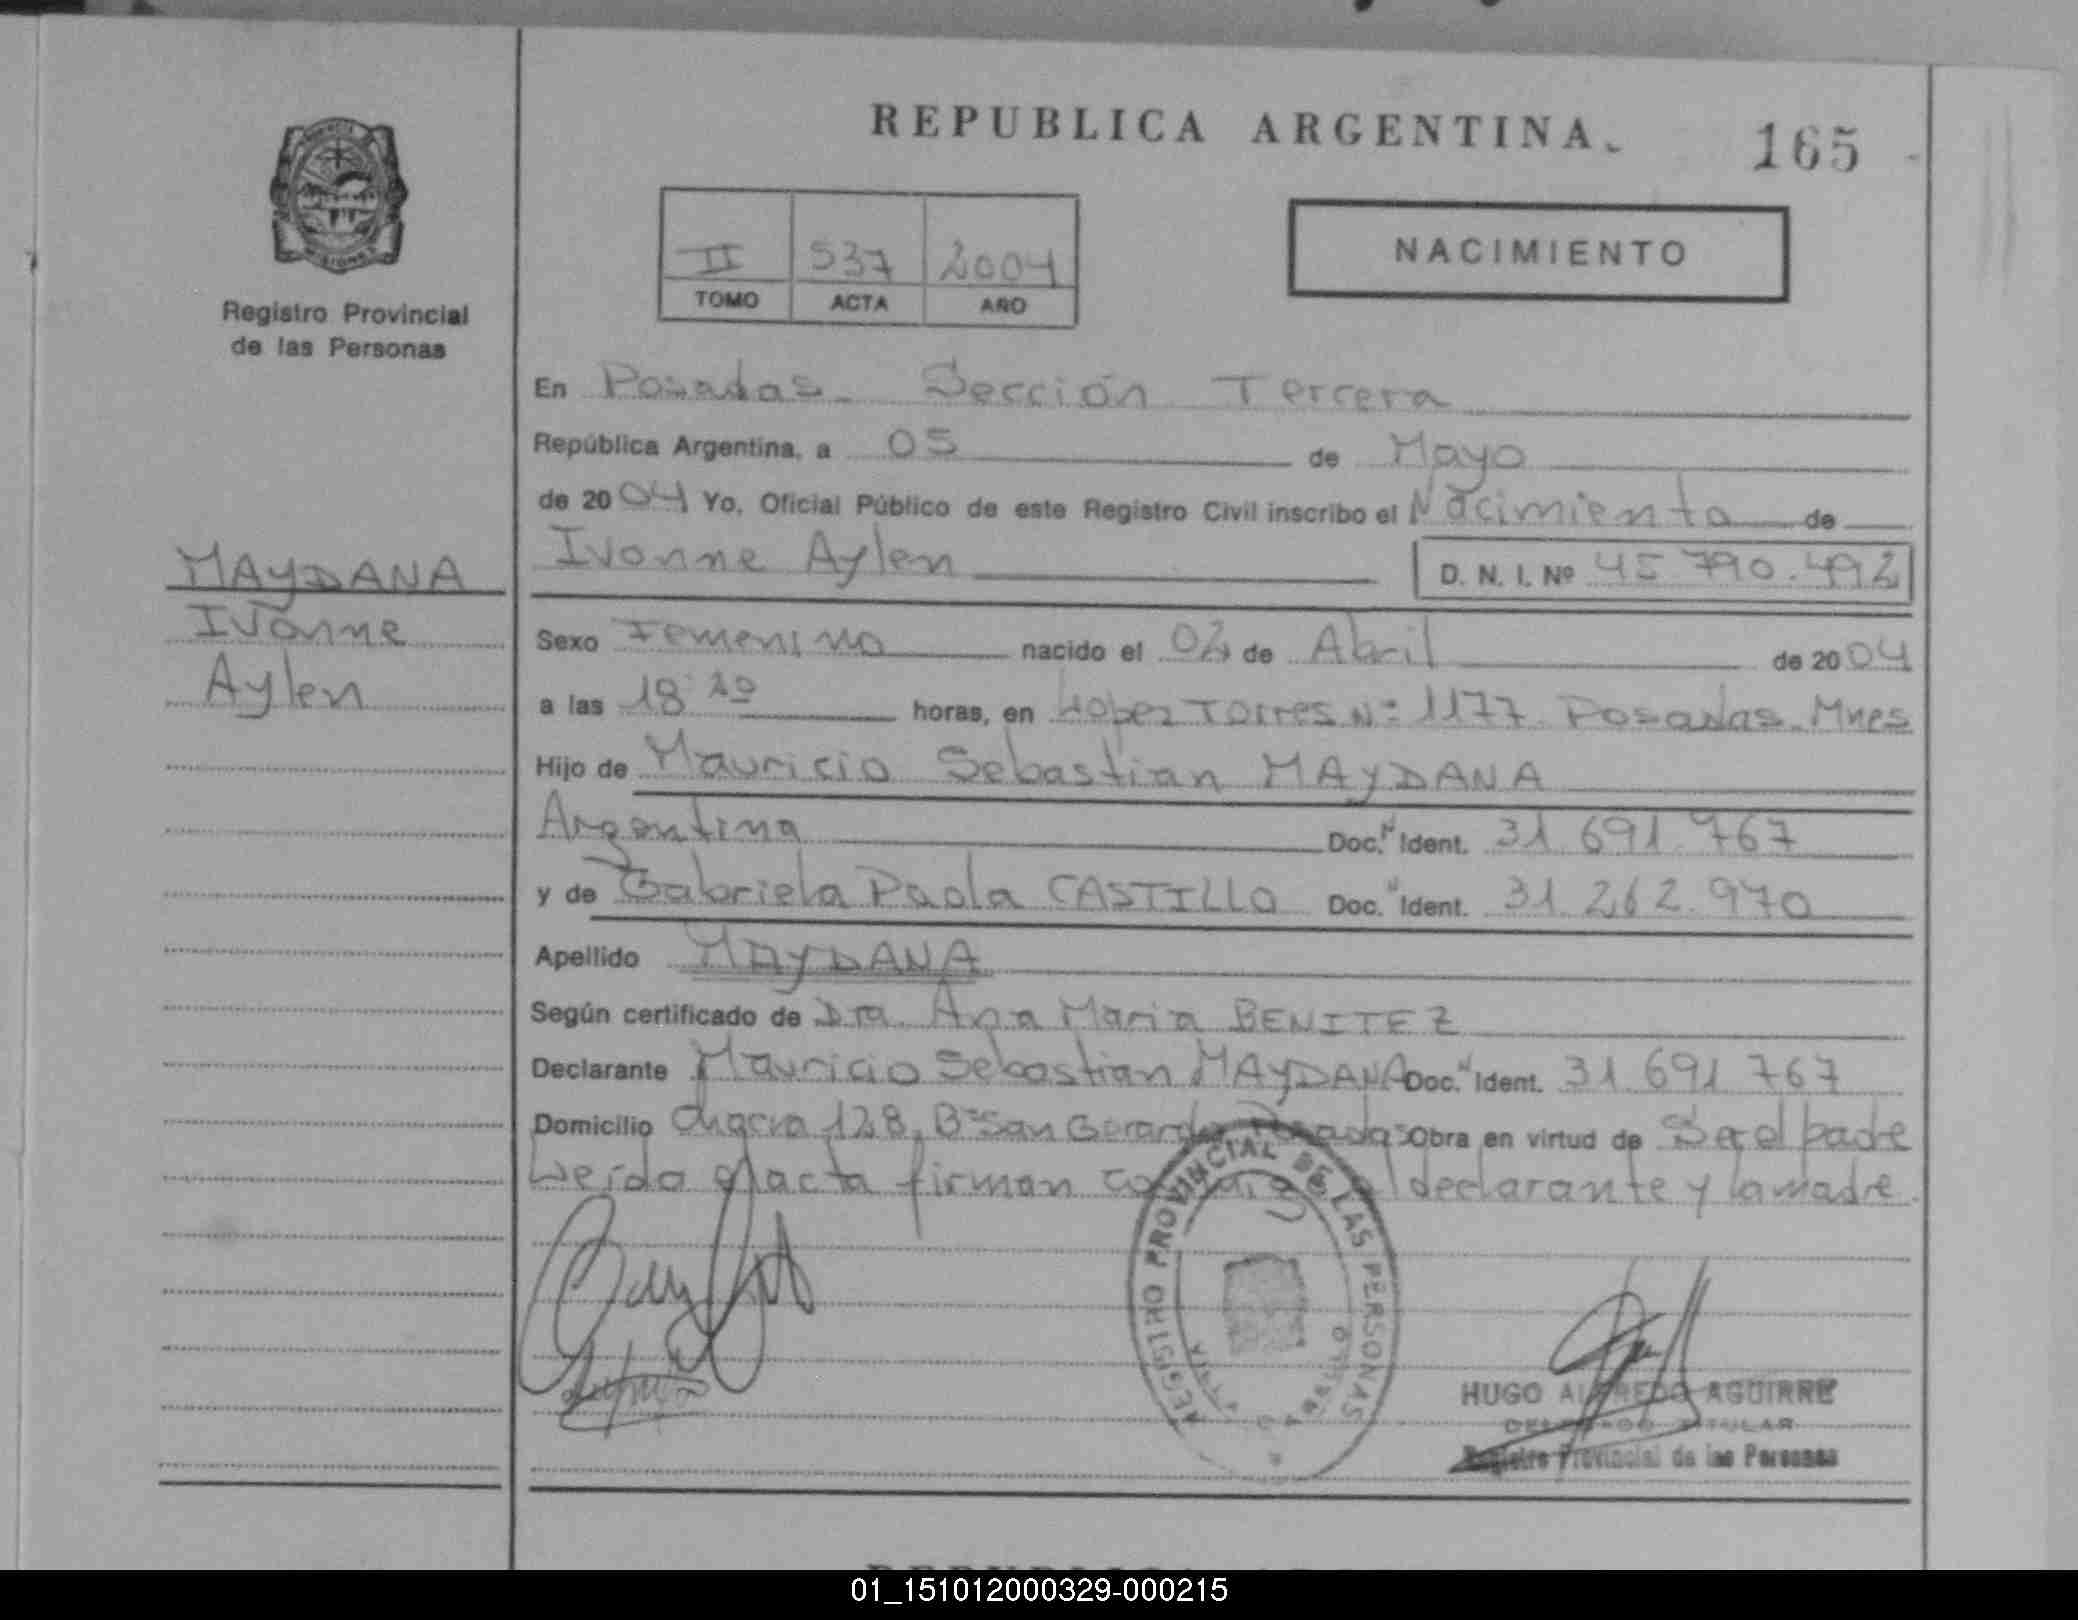 REPUBLICA ARGENTINA
165
Registro Provincial
de las Personas
II 537 2004
TOMO ACTA AÑO
NACIMIENTO
En Posadas - Sección Tercera
República Argentina, a 05 de Mayo
de 2004 Yo, Oficial Público de este Registro Civil inscribo el Nacimiento de
Ivonne Aylen D. N. I. Nº 45 790.492
MAYDANA
Ivonne
Aylen
Sexo Femenino nacido el 02 de Abril de 2004
a las 18:20 horas, en Lopez Torres Nº 1177 Posadas - Mnes
Hijo de Mauricio Sebastian MAYDANA
Argentina Doc. N Ident. 31 691.767
y de Gabriela Paola CASTILLO Doc. N Ident. 31.262.970
Apellido MAYDANA
Según certificado de Dra. Ana Maria BENITEZ
Declarante Mauricio Sebastian MAYDANA Doc. N Ident. 31.691 767
Domicilio Chacra 128, Bº San Gerardo Posadas Obra en virtud de Ser el padre
Leída el acta firman declarante y la madre.
REGISTRO PROVINCIAL DE LAS PERSONAS
HUGO ALFREDO AGUIRRE
DELEGADO TITULAR
Registro Provincial de las Personas
01_151012000329-000215